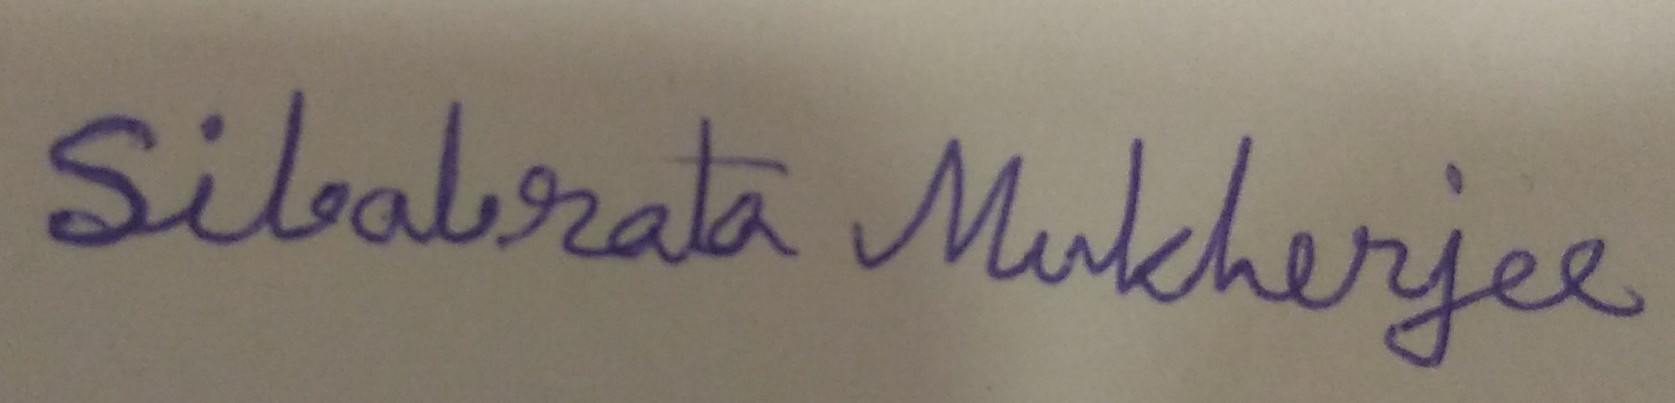 Sibabrata Mukherjee